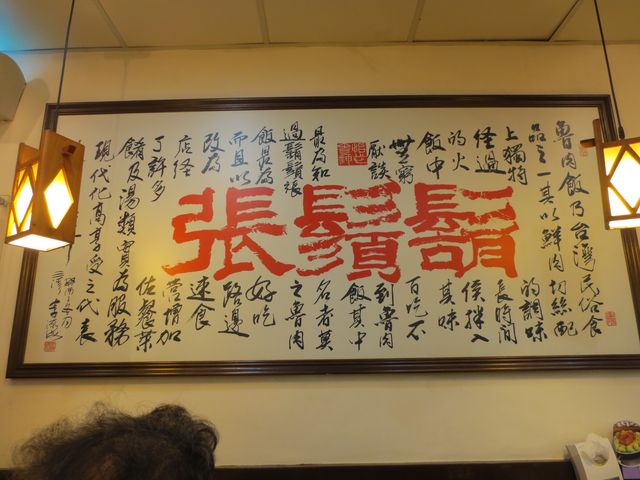 鬍鬚張
魯肉飯乃台灣民俗食
品之一其以鮮肉切絲配
上獨特的調味
經過長時間
的火侯拌入
飯中其味
無窮百吃不
厭談到魯肉
飯其中
最為知名者莫
過鬍鬚張之魯肉
飯最為好吃
而且以路邊
改為速食
店經營增加
了許多佐餐菜
餚及湯類實為服務
現代化高享受之代表